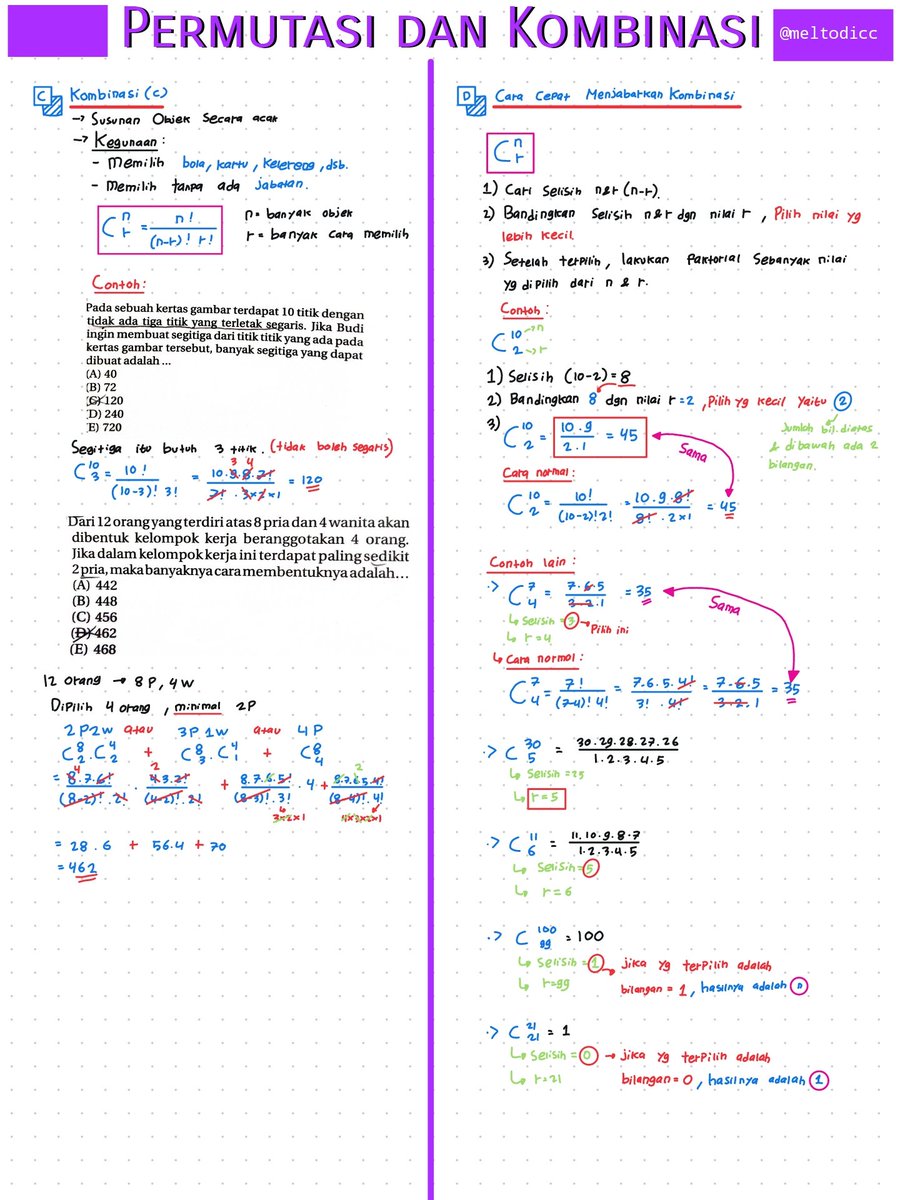 PERMUTASI DAN KOMBINASI
@meltodicc
C Kombinasi (C)
→ Susunan Objek Secara acak
→ Kegunaan:
- Memilih bola, kartu, kelereng, dsb.
- Memilih tanpa ada jabatan.
C n r = n! / (n-r)! r!
n = banyak objek
r = banyak cara memilih
Contoh:
Pada sebuah kertas gambar terdapat 10 titik dengan
tidak ada tiga titik yang terletak segaris. Jika Budi
ingin membuat segitiga dari titik titik yang ada pada
kertas gambar tersebut, banyak segitiga yang dapat
dibuat adalah ...
(A) 40
(B) 72
(C) 120
(D) 240
(E) 720
Segitiga itu butuh 3 titik. (tidak boleh segaris)
C 10 3 = 10! / (10-3)! 3! = 10.9.8.7! / 7! . 3×2×1 = 120
3 4
Dari 12 orang yang terdiri atas 8 pria dan 4 wanita akan
dibentuk kelompok kerja beranggotakan 4 orang.
Jika dalam kelompok kerja ini terdapat paling sedikit
2 pria, maka banyaknya cara membentuknya adalah...
(A) 442
(B) 448
(C) 456
(D) 462
(E) 468
12 orang → 8 P, 4 W
Dipilih 4 orang, minimal 2P
2P2W atau 3P 1W atau 4P
C 8 2 . C 4 2 + C 8 3 . C 4 1 + C 8 4
4 2 2
= 8.7.6! / (8-2)! . 2! . 4.3.2! / (4-2)! . 2! + 8.7.6.5! / (8-3)! . 3! . 4 + 8.7.6.5.4! / (8-4)! . 4!
3×2×1 4×3×2×1
= 28.6 + 56.4 + 70
= 462
D Cara Cepat Menjabarkan Kombinasi
C n r
1) Cari Selisih n&r (n-r).
2) Bandingkan Selisih n&r dgn nilai r, Pilih nilai yg
lebih kecil
3) Setelah terpilih, lakukan faktorial Sebanyak nilai
yg dipilih dari n & r.
Contoh:
C 10 → n
2 → r
1) Selisih (10-2) = 8
2) Bandingkan 8 dgn nilai r = 2, Pilih yg kecil Yaitu 2
3) C 10 2 = 10.9 / 2.1 = 45
Jumlah bil. diatas
& dibawah ada 2
bilangan.
Sama
Cara normal:
C 10 2 = 10! / (10-2)! 2! = 10.9.8! / 8! . 2×1 = 45
Contoh lain:
·> C 7 4 = 7.6.5 / 3.2.1 = 35
↳ Selisih = 3 → Pilih ini
↳ r = 4
Sama
↳ Cara normal:
C 7 4 = 7! / (7-4)! 4! = 7.6.5.4! / 3! . 4! = 7.6.5 / 3.2.1 = 35
·> C 30 5 = 30.29.28.27.26 / 1.2.3.4.5
↳ Selisih = 25
↳ r = 5
·> C 11 6 = 11.10.9.8.7 / 1.2.3.4.5
↳ Selisih = 5
↳ r = 6
·> C 100 99 = 100
↳ Selisih = 1 → jika yg terpilih adalah
↳ r=99 bilangan = 1, hasilnya adalah n
·> C 21 21 = 1
↳ Selisih = 0 → jika yg terpilih adalah
↳ r=21 bilangan = 0, hasilnya adalah 1